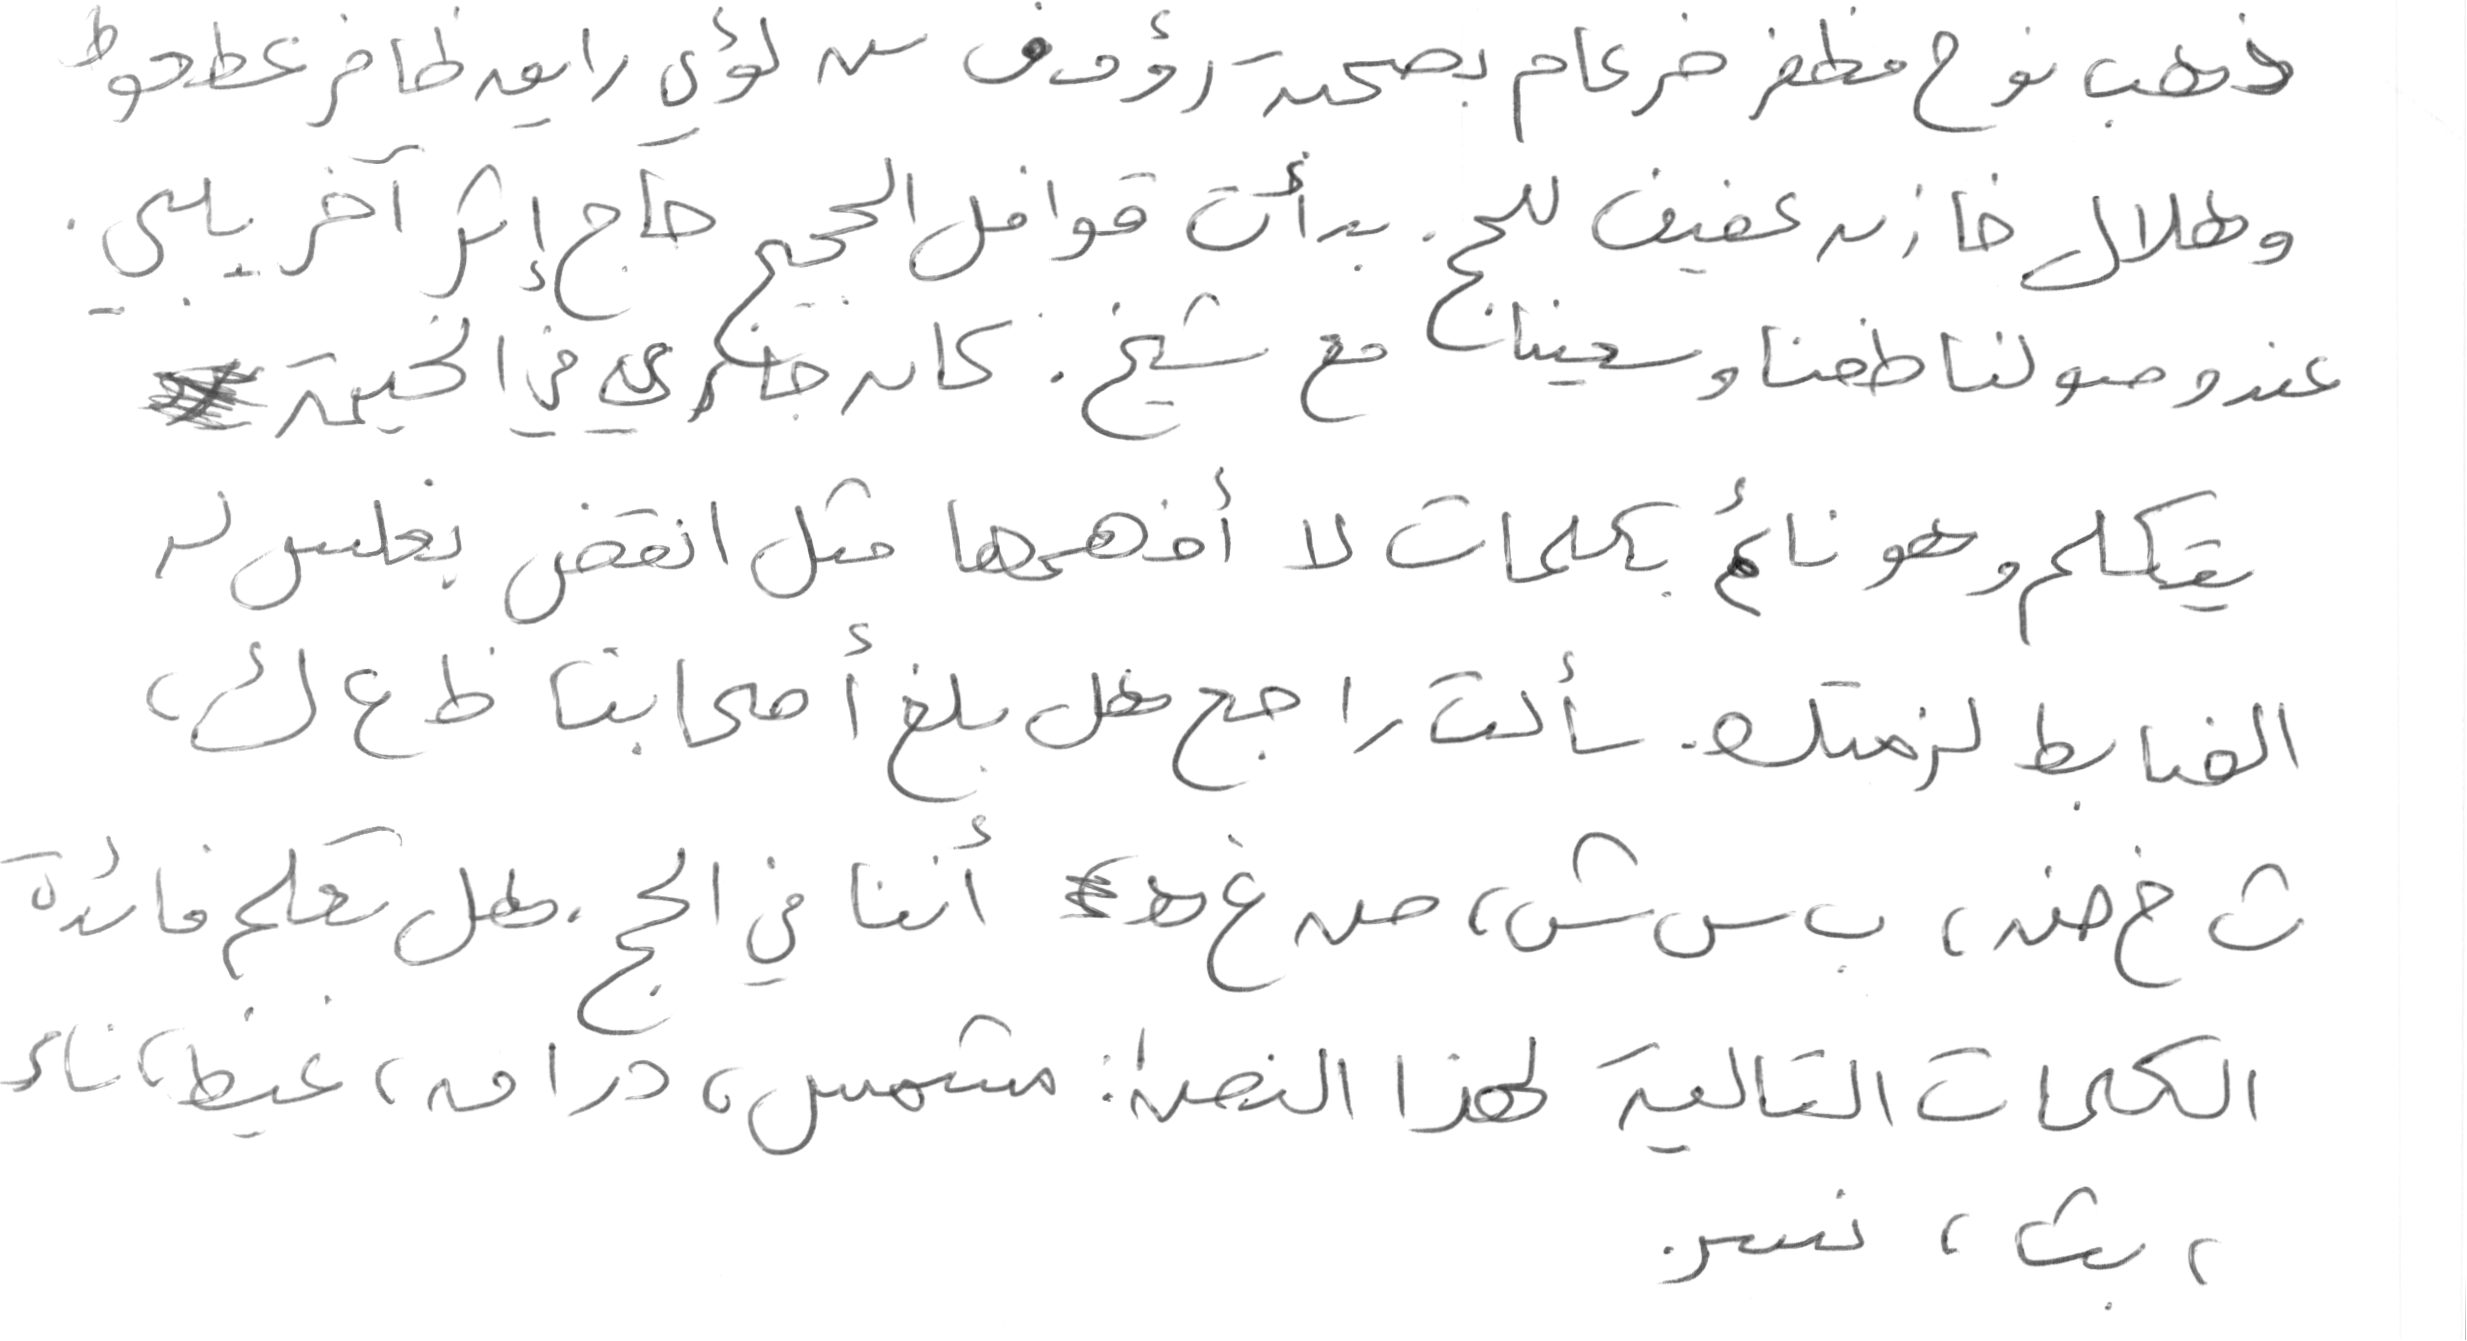 ذهب نوح مظفر ضرغام بصحبة رؤوف بن لؤي رايق ظافر عطعوط
وهلال خازن عفيف للحج. بدأت قوافل الحجيج حاج إثر آخر يلبي.
عند وصولنا طفنا وسعينا مع شيخ. كان جاري في الخيمة
يتكلم وهو نائم بكلمات لا أفهمها مثل انقض بغلس لن
الضابط لزمتك. سألت راجح هل بلغ أصحابنا ظ ع ك،
ث خ ض، ب س ش، ص غ ه أننا في الحج. هل تعلم فائدة
الكلمات التالية لهذا النص: مشمس، دراق، غيظ، ناء
، بث، نسر.